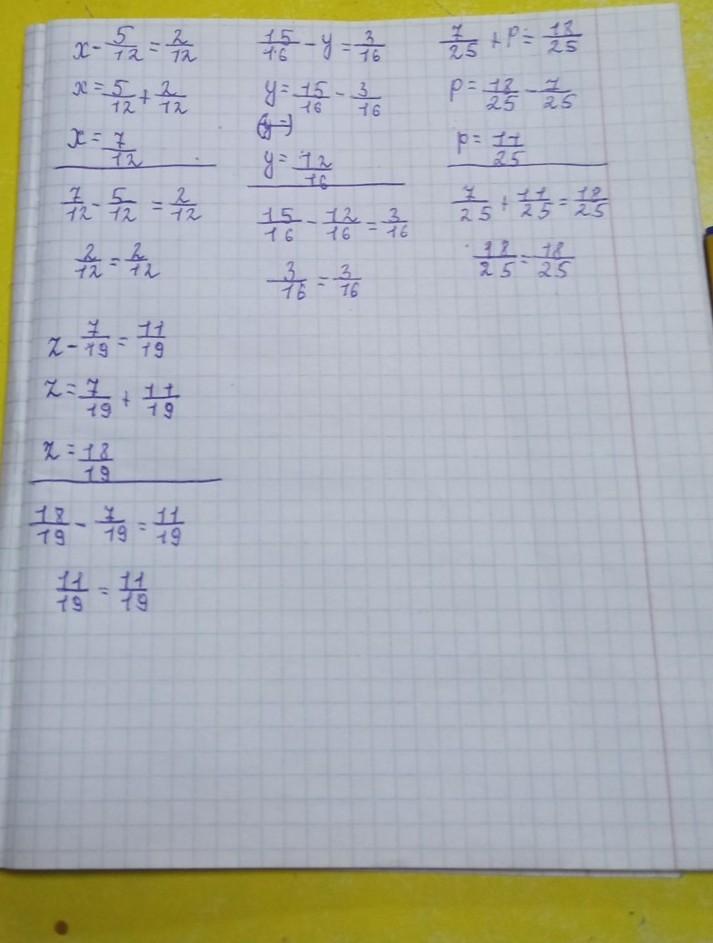 x - 5/12 = 2/12
x = 5/12 + 2/12
x = 7/12
7/12 - 5/12 = 2/12
2/12 = 2/12
15/16 - y = 3/16
y = 15/16 - 3/16
y = 12/16
15/16 - 12/16 = 3/16
3/16 = 3/16
7/25 + p = 18/25
p = 18/25 - 7/25
p = 11/25
7/25 + 11/25 = 18/25
18/25 = 18/25
z - 7/19 = 11/19
z = 7/19 + 11/19
z = 18/19
18/19 - 7/19 = 11/19
11/19 = 11/19